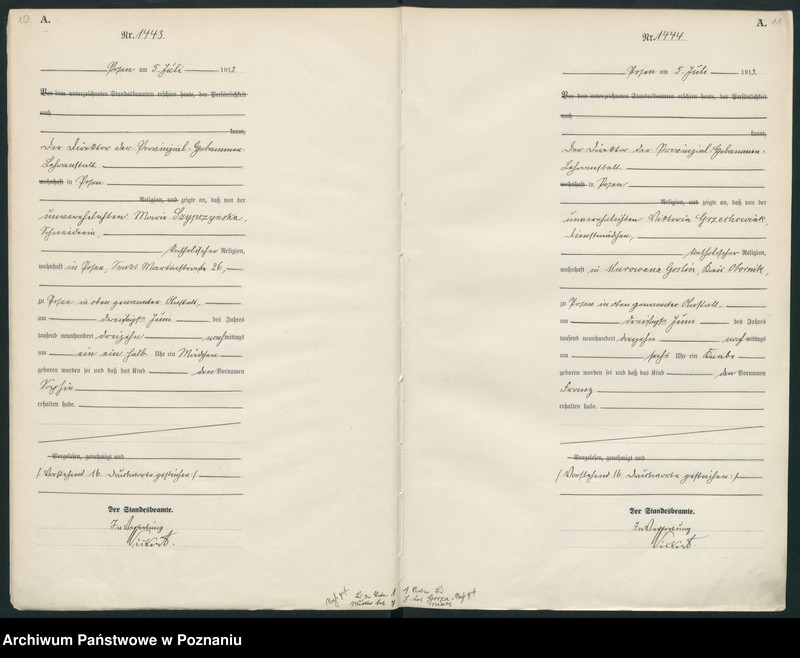 10
A.
Nr. 1443.
Posen am 5. Juli 1913
Vor dem unterzeichneten Standesbeamten erschien heute, der Persönlichkeit
nach
kannt,
Der Direktor der Provinzial-Hebammen-
Lehranstalt
wohnhaft in Posen
Religion, und zeigte an, daß von der
unverehelichten Maria Szypczynska,
Schneiderin,
katholischer Religion,
wohnhaft in Posen, Sankt Martinstraße 26,
zu Posen in oben genannter Anstalt,
am dreißigsten Juni des Jahres
tausend neunhundert dreizehn nachmittags
um ein ein halb Uhr ein Mädchen
geboren worden sei und daß das Kind den Vornamen
Sophie
erhalten habe.
Vorgelesen, genehmigt und
(: Vorstehend 16 Druckworte gestrichen :)
Der Standesbeamte.
In Vertretung
11
A.
Nr. 1444
Posen am 5. Juli 1913.
Vor dem unterzeichneten Standesbeamten erschien heute, der Persönlichkeit
nach
kannt,
Der Direktor der Provinzial-Hebammen-
Lehranstalt
wohnhaft in Posen
Religion, und zeigte an, daß von der
unverehelichten Viktoria Grzechowiak,
Dienstmädchen,
katholischer Religion,
wohnhaft in Murowana Goslin, Kreis Obornik,
zu Posen in oben genannter Anstalt,
am dreißigsten Juni des Jahres
tausend neunhundert dreizehn nachmittags
um sechs Uhr ein Knabe
geboren worden sei und daß das Kind den Vornamen
Franz
erhalten habe.
Vorgelesen, genehmigt und
(: Vorstehend 16 Druckworte gestrichen :)
Der Standesbeamte.
In Vertretung
Archiwum Państwowe w Poznaniu